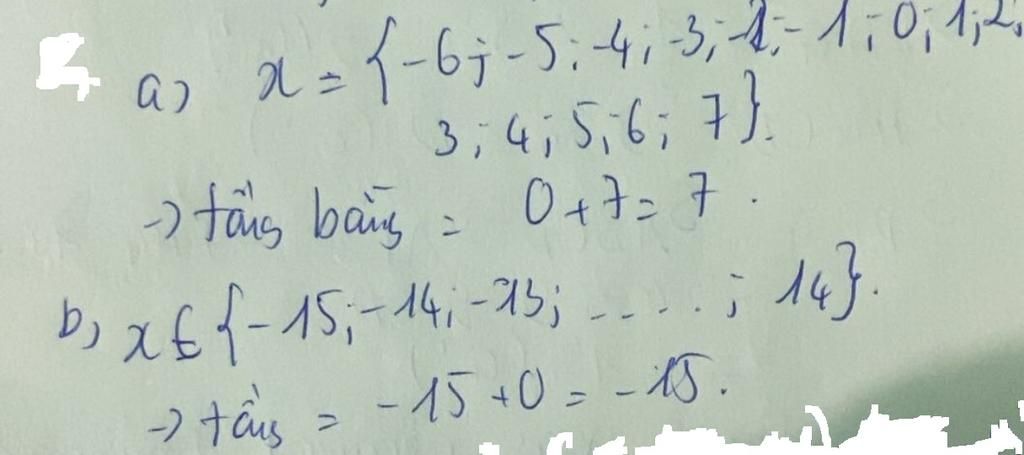 a) x = {-6; -5; -4; -3; -2; -1; 0; 1; 2;
3; 4; 5; 6; 7}.
-> tổng bằng = 0 + 7 = 7.
b) x ∈ {-15; -14; -13; .....; 14}.
-> tổng = -15 + 0 = -15.